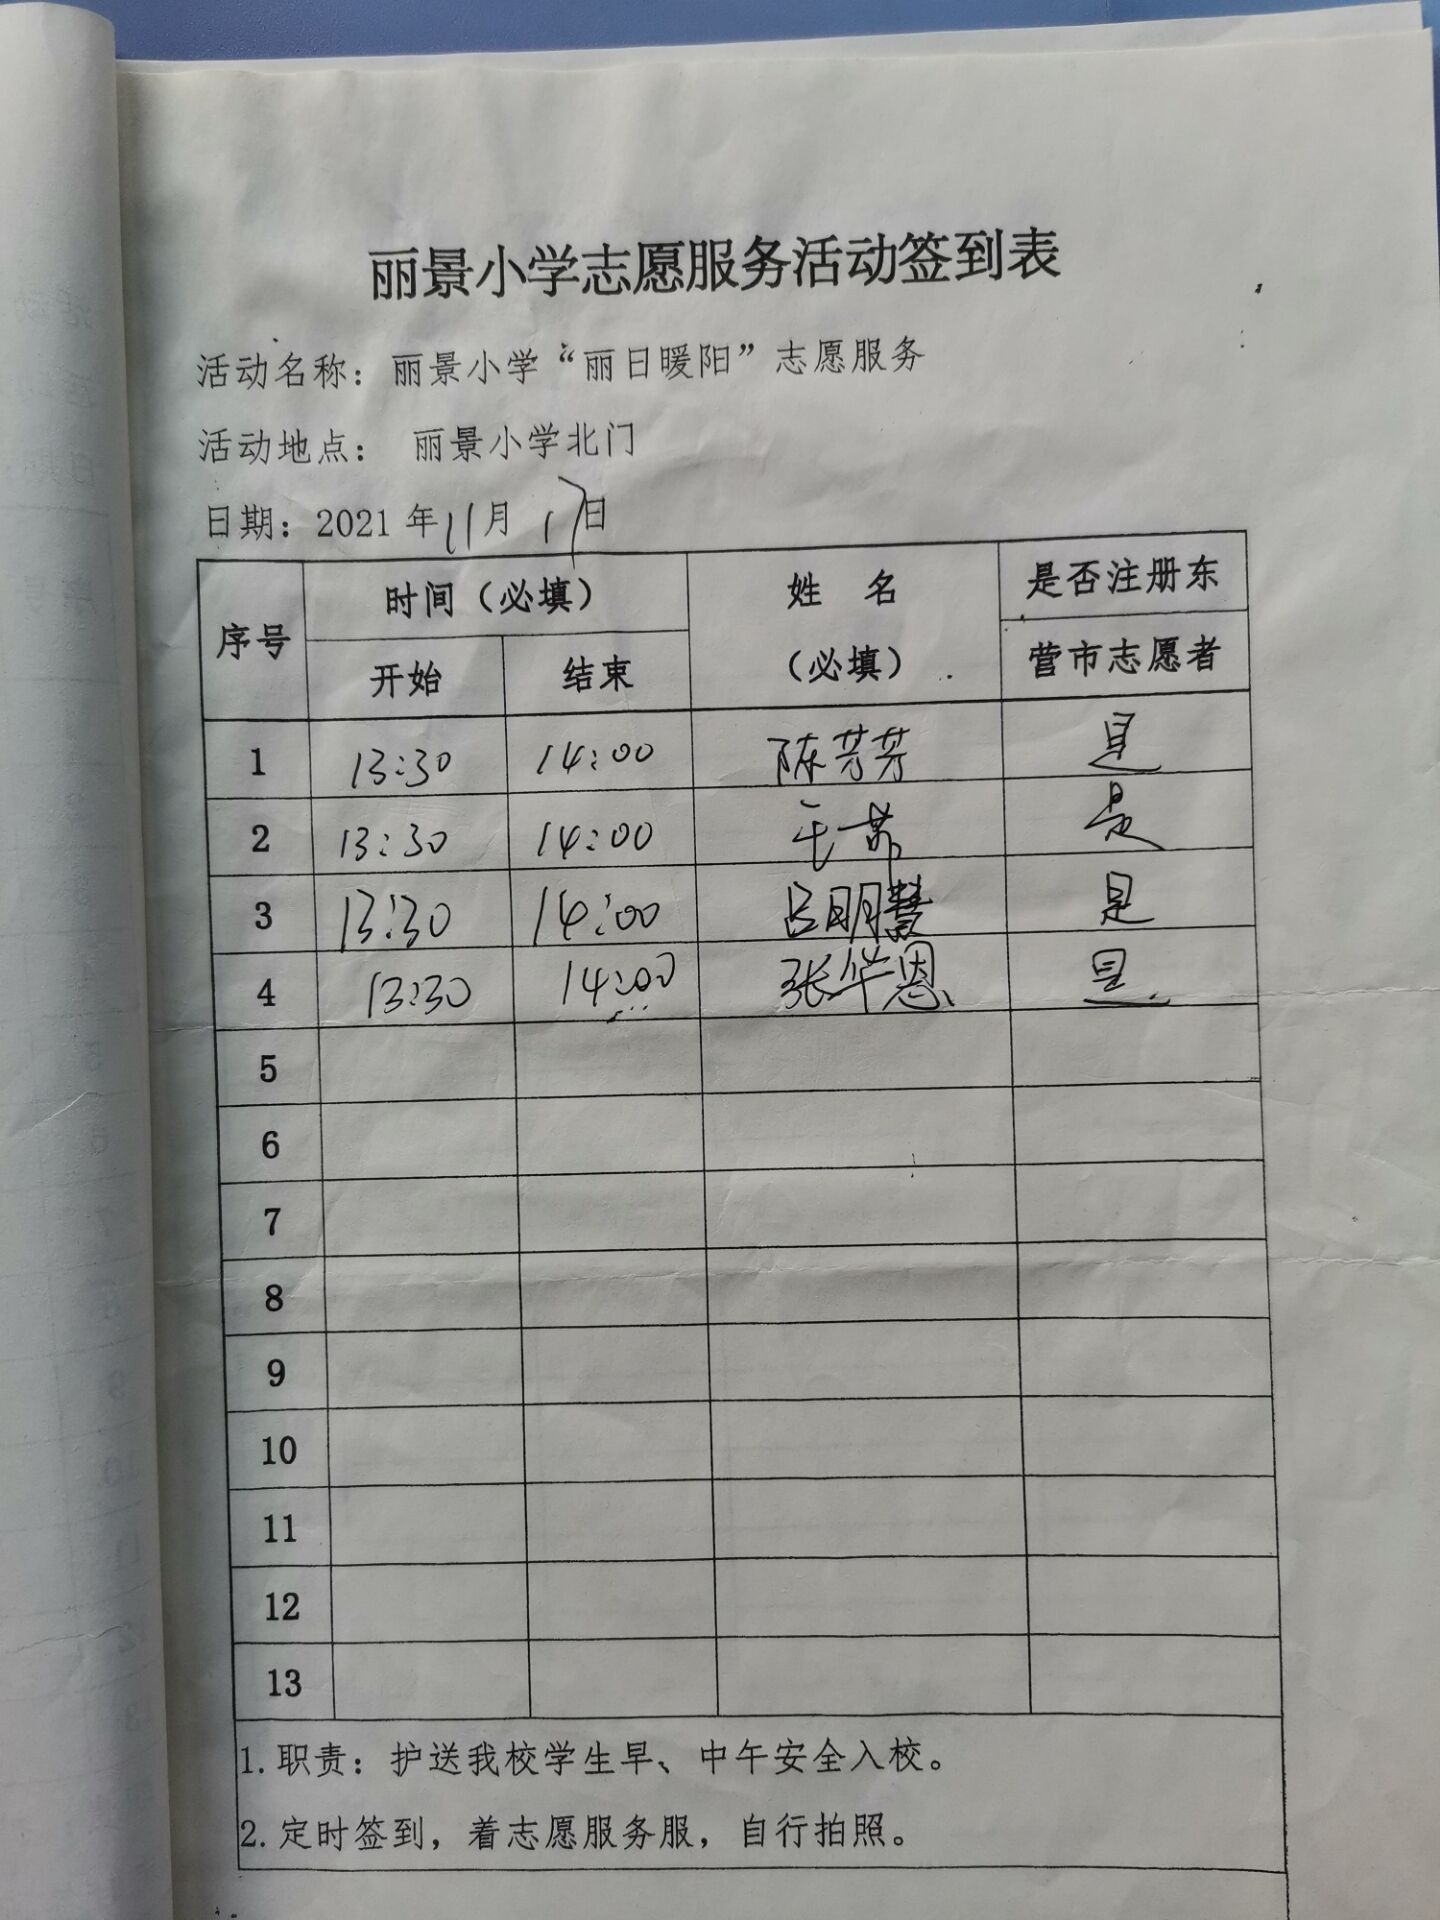 丽景小学志愿服务活动签到表
活动名称：丽景小学“丽日暖阳”志愿服务
活动地点： 丽景小学北门
日期：2021年11月17日
序号 时间（必填） 姓 名 是否注册东
开始 结束 （必填） 营市志愿者
1 13:30 14:00 陈芳芳 是
2 13:30 14:00 是
3 13:30 14:00 吕明慧 是
4 13:30 14:00 张华恩 是
5
6
7
8
9
10
11
12
13
1.职责：护送我校学生早、中午安全入校。
2.定时签到，着志愿服务服，自行拍照。